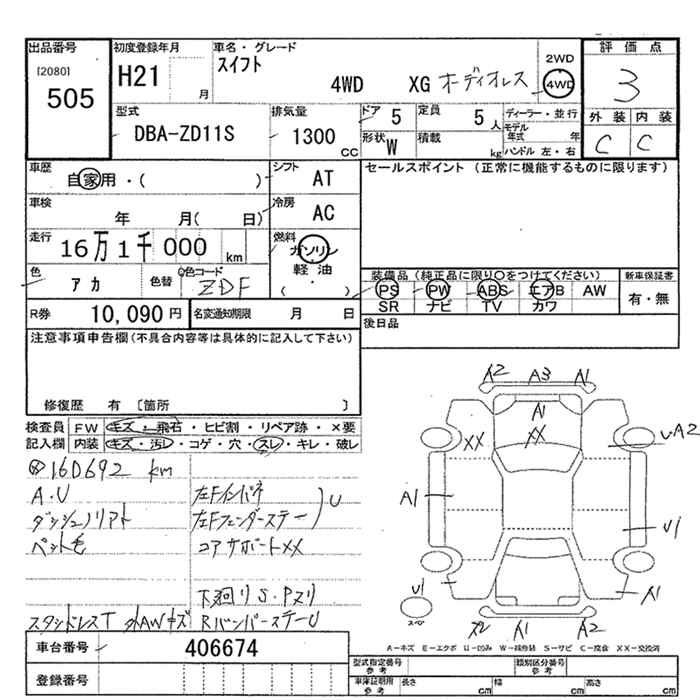 出品番号
[2080]
505
初度登録年月
H21 月
車名・グレード
スイフト
4WD XG オーディオレス
2WD
4WD
評価点
3
外装 内装
C C
型式
DBA-ZD11S
排気量
1300 CC
ドア 5
定員 5 人
形状 W
積載 kg
ディーラー・並行
モデル年式 年
ハンドル 左・右
車歴
自家用・( )
シフト AT
車検 年 月( 日)
冷房 AC
走行 16万1千000 km
燃料 ガソリン
軽油
( ・ )
色 アカ
色替
色コード ZDF
R券 10,090円
名変通知期限 月 日
セールスポイント (正常に機能するものに限ります)
装備品 (純正品に限り○をつけてください)
PS PW ABS エアB AW
SR ナビ TV カワ
新車保証書
有・無
後日品
注意事項申告欄(不具合内容等は具体的に記入して下さい)
修復歴 有 [箇所 ]
検査員 FW キズ・飛石・ヒビ割・リペア跡・×要
記入欄 内装 キズ・汚レ・コゲ・穴・スレ・キレ・破レ
160692 km
A.U
左Fインパネ
ダッシュノリアト
左Fフェンダーステー U
ペット毛
コアサポートXX
下廻りS.Pヌリ
スタッドレスT
RバンパーステーU
車台番号 406674
登録番号
A2 A3 A1
A1
XX XX
UA2
A1
U1
U1
A1
A1 A2
A-キズ E-エクボ U-凹み W-補修跡 S-サビ C-腐食 XX-交換済
型式指定番号 参考
類別区分番号 参考
車庫証明用 参考 長さ cm 幅 cm 高さ cm